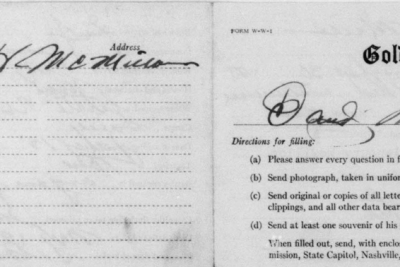 Address
McMillan
FORM W-W-1
Gol
David
Directions for filling:
(a) Please answer every question in f
(b) Send photograph, taken in unifor
(c) Send original or copies of all lette
clippings, and all other data bear
(d) Send at least one souvenir of his
When filled out, send, with enclo
mission, State Capitol, Nashville,